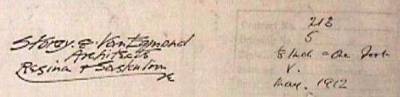 Storey & Van Egmond
Architects
Regina & Saskatoon
213
5
8 Inch = One Foot
V.
May. 1912